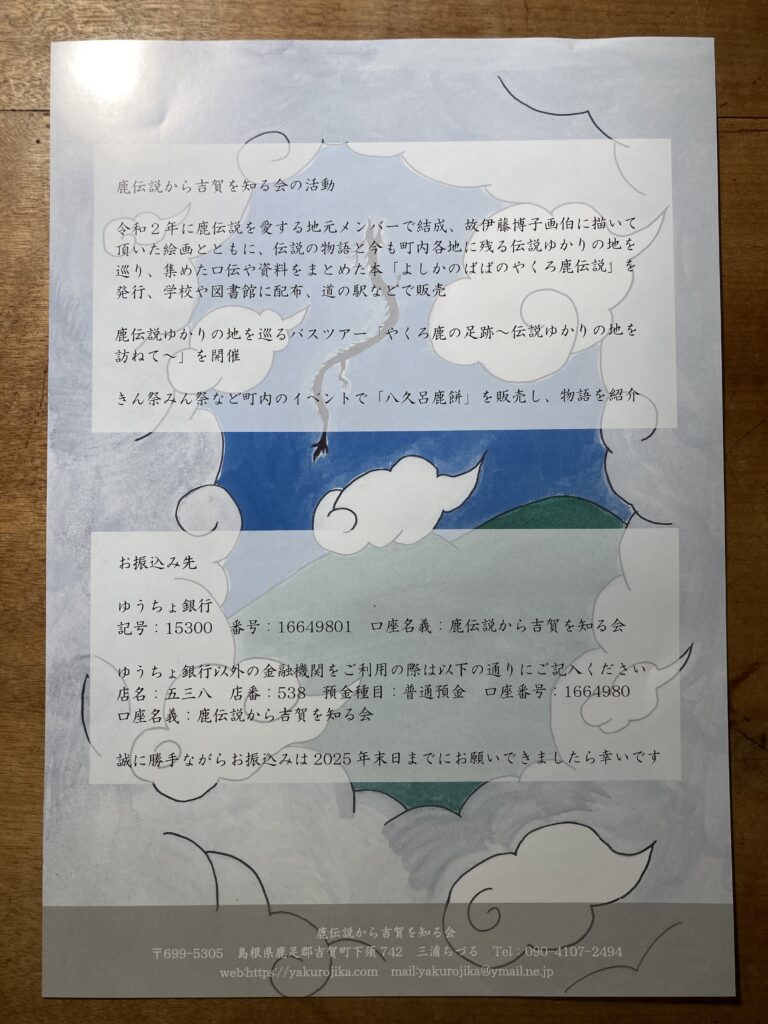 鹿伝説から吉賀を知る会の活動
令和２年に鹿伝説を愛する地元メンバーで結成、故伊藤博子画伯に描いて
頂いた絵画とともに、伝説の物語と今も町内各地に残る伝説ゆかりの地を
巡り、集めた口伝や資料をまとめた本「よしかのばばのやくろ鹿伝説」を
発行、学校や図書館に配布、道の駅などで販売
鹿伝説ゆかりの地を巡るバスツアー「やくろ鹿の足跡～伝説ゆかりの地を
訪ねて～」を開催
きん祭みん祭など町内のイベントで「八久呂鹿餅」を販売し、物語を紹介
お振込み先
ゆうちょ銀行
記号：15300　番号：16649801　口座名義：鹿伝説から吉賀を知る会
ゆうちょ銀行以外の金融機関をご利用の際は以下の通りにご記入ください
店名：五三八　店番：538　預金種目：普通預金　口座番号：1664980
口座名義：鹿伝説から吉賀を知る会
誠に勝手ながらお振込みは 2025 年末日までにお願いできましたら幸いです
鹿伝説から吉賀を知る会
〒699-5305　島根県鹿足郡吉賀町下須 742　三浦ちづる　Tel：090-4107-2494
web:https://yakurojika.com　mail:yakurojika@ymail.ne.jp